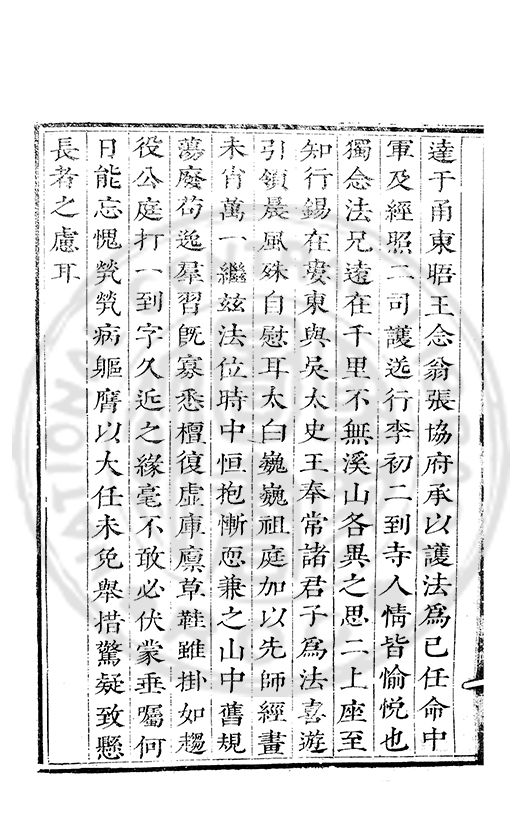 達于甬東晤王念翁張協府承以護法為己任命中
軍及經照二司護送行李初二到寺人情皆愉悅也
獨念法兄遠在千里不無溪山各異之思二上座至
知行錫在婁東與吳太史王奉常諸君子為法喜遊
引領晨風殊自慰耳太白巍巍祖庭加以先師經畫
未肯萬一繼茲法位時中恒抱慚恧兼之山中舊規
蕩廢苟逸羣習旣寡悉檀復虛庫廩草鞋雖掛如趨
役公庭打一到字久近之緣毫不敢必伏蒙垂囑何
日能忘愧煢煢病軀膺以大任未免舉措驚疑致懸
長者之慮耳